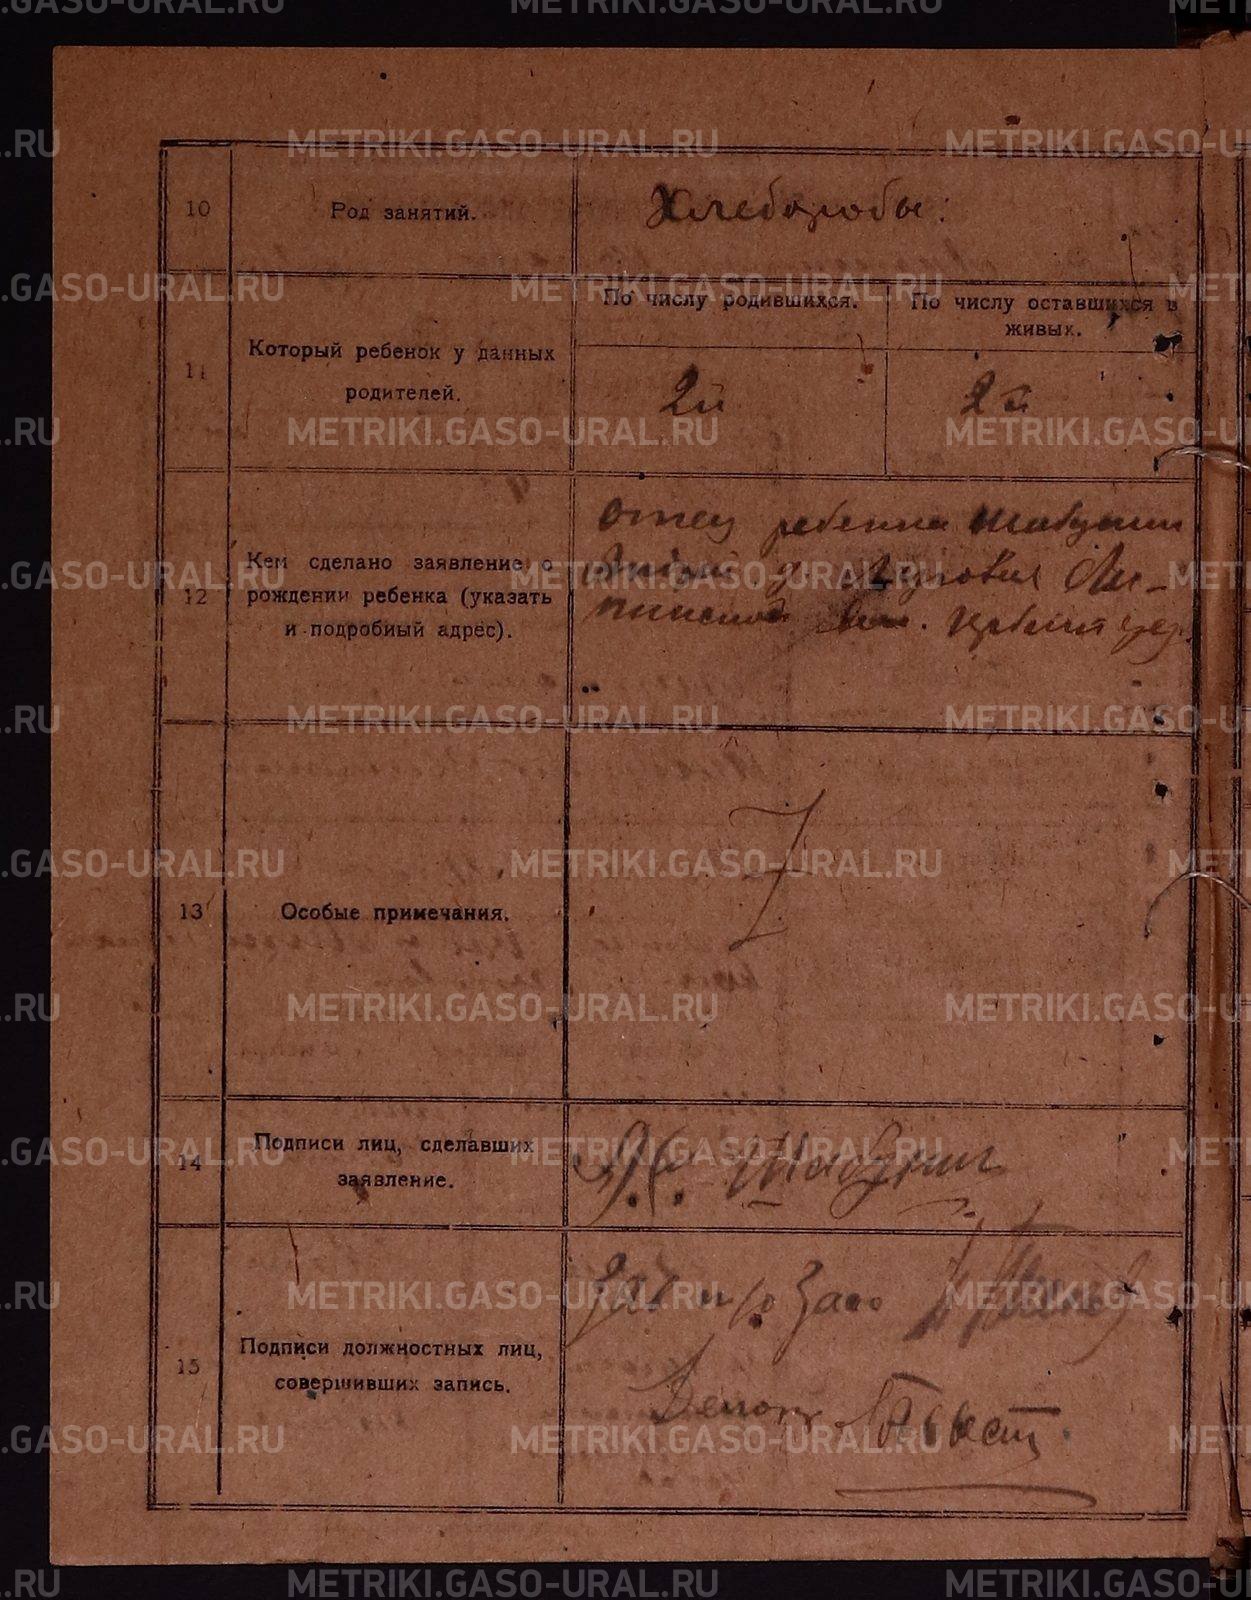 10
Род занятий.
Хлеборобы:
11
Который ребенок у данных
родителей.
По числу родившихся.
По числу оставшихся в
живых.
2й
2й
12
Кем сделано заявление о
рождении ребенка (указать
и подробный адрес).
Отец ребенка Шабунин
д. Луговая
вол.
13
Особые примечания.
14
Подписи лиц, сделавших
заявление.
Шабунин
15
Подписи должностных лиц,
совершивших запись.
Зав п/о Загс
METRIKI.GASO-URAL.RU